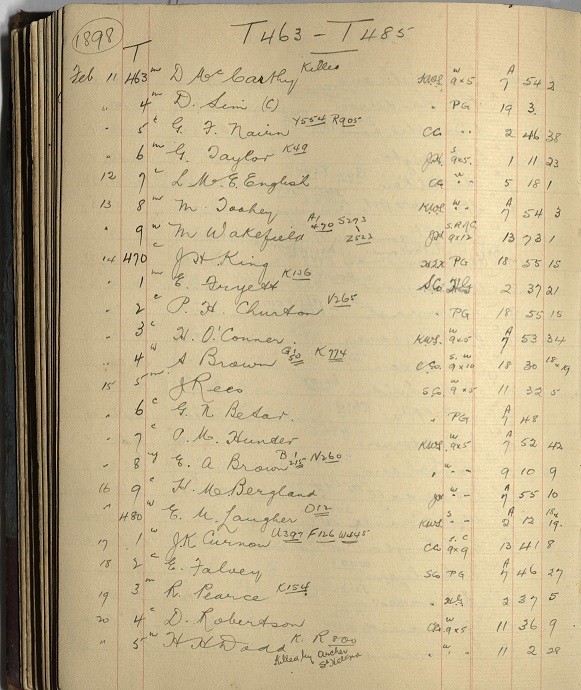 1898 T463 – T485
T
Feb 11 463 m D McCarthy Killed w 9x5 A 7 54 2
" 4 m D. Sim (C) " PG 19 3
" 5 c G. F. Nairn Y554 R905 CG " " 2 46 38
" 6 m G. Taylor K49 s 9x5 1 11 23
12 7 c L McE. English CG w " " 5 18 1
13 8 m M. Toohey KWS w 9x5 A 7 54 3
" 9 w M Wakefield A1 490 S293 Z523 9x12 13 73 1
14 470 c J H King PG 18 55 15
" 1 m E. Tryett K136 SG 2 37 21
" 2 c P. H. Churton V265 " PG 18 55 15
" 3 c H. O'Conner. KWS w 9x5 A 7 53 34
" 4 w A Brown G1 50 K774 s.w 9x10 18 30
15 5 m J Rees SG w 9x5 11 32 5
" 6 c G. N Betar. " PG A 7 48
" 7 c A. M. Hunter KWS w 9x5 A 7 52 42
" 8 E. A Brown B1 215 N260 " w " " 9 10 9
16 9 c H. McBergland w " " A 7 55 10
" 480 w E. M. Laugher O12 KWS s " " A 2 12
17 1 w J.K Curnow U397 F126 W445 CG s.c 9x9 13 41 8
18 2 c E. Falvey SG PG A 7 46 27
19 3 m R. Pearce K154 " 2 37 5
20 4 c D. Robertson w 9x5 11 36 9
" 5 m H H Dodd K. R800 " w " " 11 2 28
Killed by Archer
St Helena